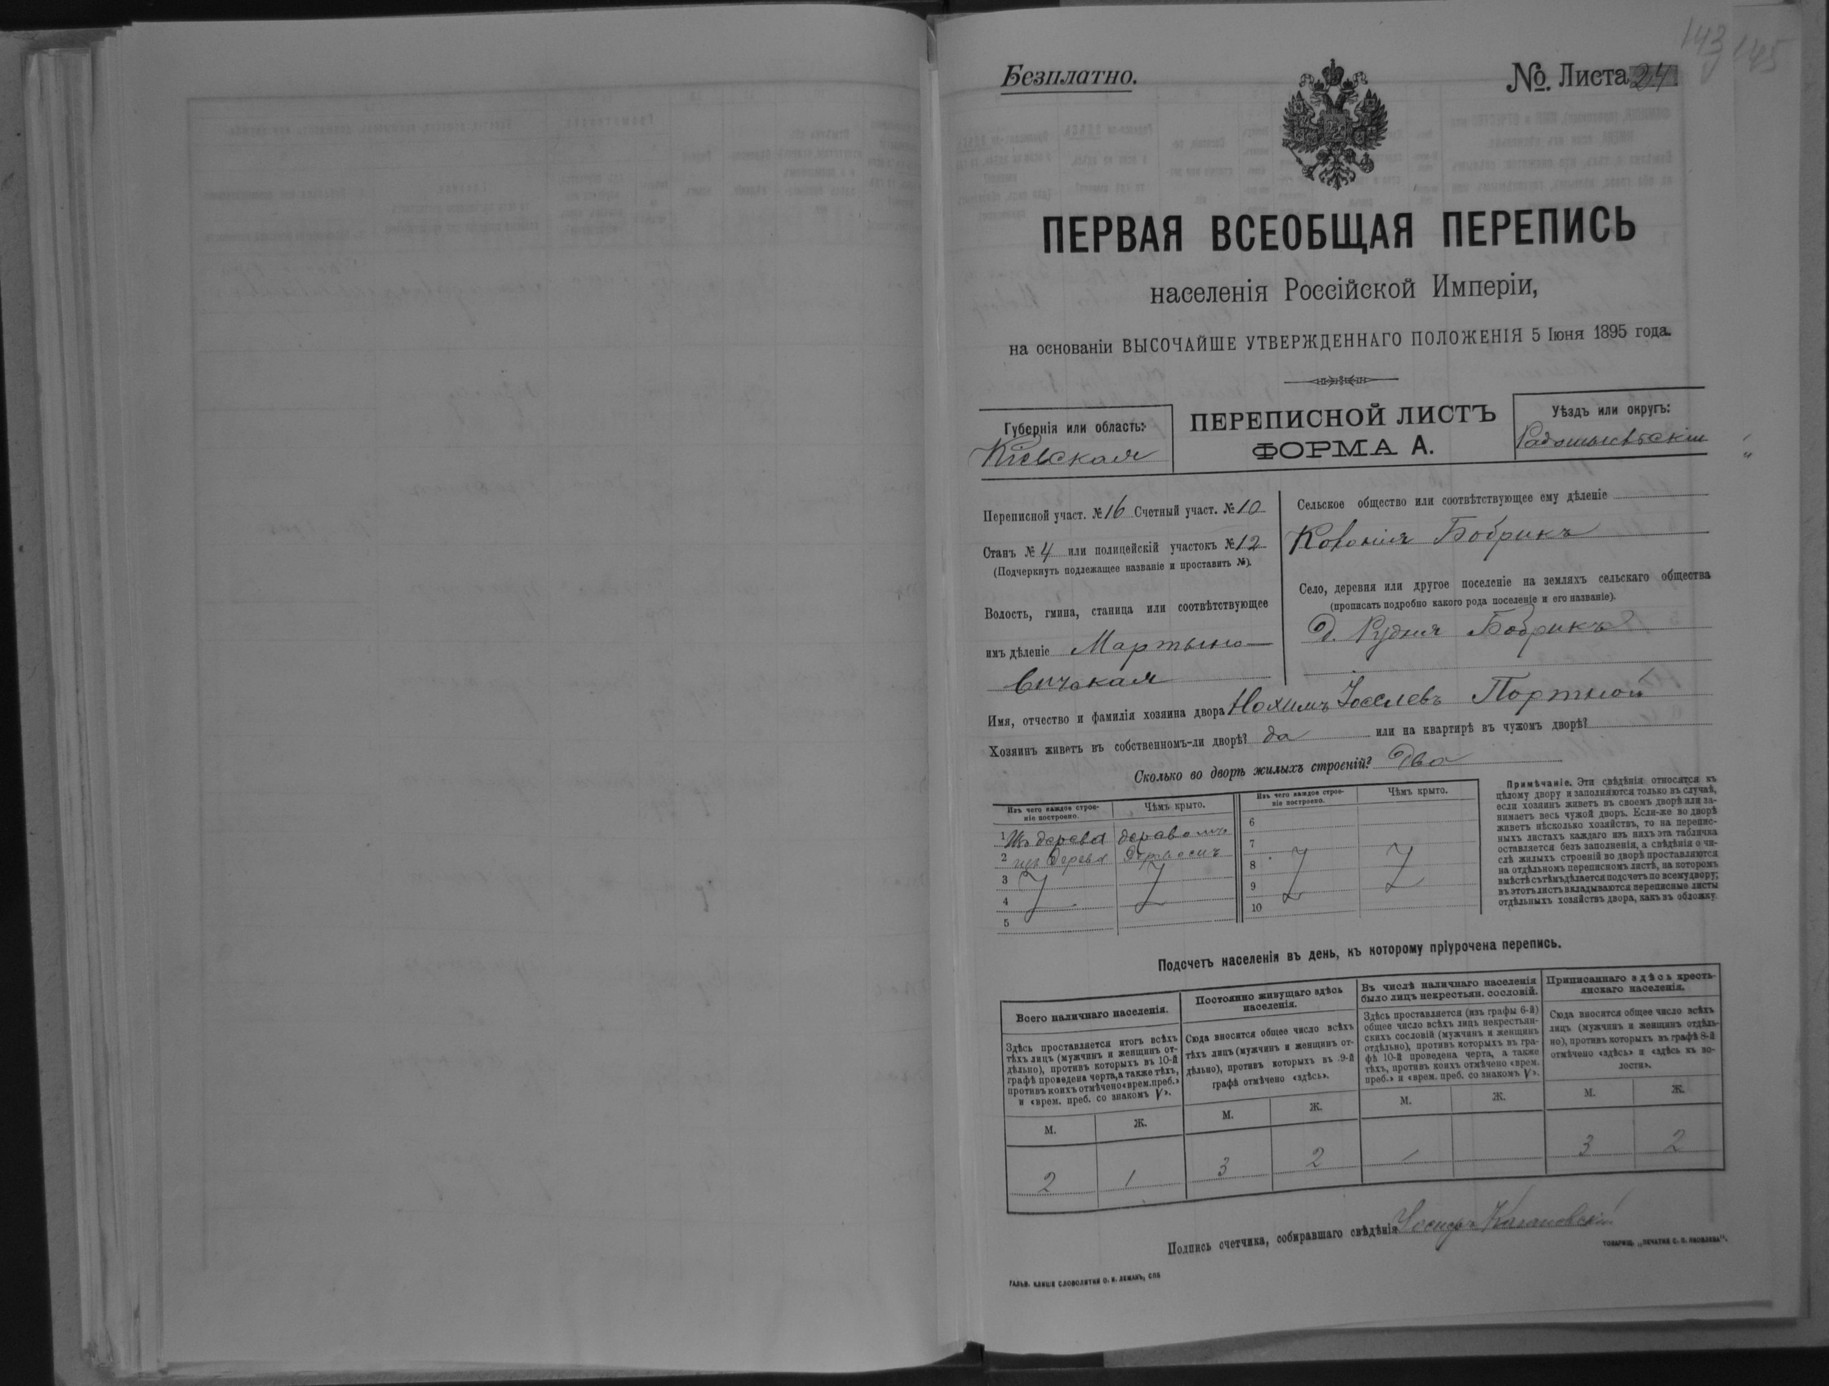 143 145
Безплатно.
№. Листа 24
ПЕРВАЯ ВСЕОБЩАЯ ПЕРЕПИСЬ
населенія Россійской Имперіи,
на основаніи ВЫСОЧАЙШЕ УТВЕРЖДЕННАГО ПОЛОЖЕНІЯ 5 Іюня 1895 года.
Губернія или область:
Кіевская
ПЕРЕПИСНОЙ ЛИСТЪ
ФОРМА А.
Уѣздъ или округъ:
Радомысльскій
Переписной участ. № 16 Счетный участ. № 10
Станъ № 4 или полицейскій участокъ № 12
(Подчеркнуть подлежащее названіе и проставить №).
Волость, гмина, станица или соотвѣтствующее
имъ дѣленіе Мартыно-
вичская
Сельское общество или соотвѣтствующее ему дѣленіе
Колонія Бобрикъ
Село, деревня или другое поселеніе на земляхъ сельскаго общества
(прописать подробно какого рода поселеніе и его названіе).
Д. Рудня Бобрикъ
Имя, отчество и фамилія хозяина двора Нохимъ Іоселевъ Портной
Хозяинъ живетъ въ собственномъ-ли дворѣ? да или на квартирѣ въ чужомъ дворѣ?
Сколько во дворѣ жилыхъ строеній? Два
Изъ чего каждое строе-
ніе построено.
Чѣмъ крыто.
1 Изъ дерева деревомъ
2 изъ дерева деревомъ
3
4
5
Изъ чего каждое строе-
ніе построено.
Чѣмъ крыто.
6
7
8
9
10
Примѣчаніе. Эти свѣдѣнія относятся къ
цѣлому двору и заполняются только въ случаѣ,
если хозяинъ живетъ въ своемъ дворѣ или за-
нимаетъ весь чужой дворъ. Если-же во дворѣ
живетъ нѣсколько хозяйствъ, то на перепис-
ныхъ листахъ каждаго изъ нихъ эта табличка
оставляется безъ заполненія, а свѣдѣнія о чи-
слѣ жилыхъ строеній во дворѣ проставляются
на отдѣльномъ переписномъ листѣ, на которомъ
вмѣстѣ съ тѣмъ дѣлается подсчетъ по всему двору;
въ этотъ листъ вкладываются переписные листы
отдѣльныхъ хозяйствъ двора, какъ въ обложку.
Подсчетъ населенія въ день, къ которому пріурочена перепись.
Всего наличнаго населенія.
Здѣсь проставляется итогъ всѣхъ
тѣхъ лицъ (мужчинъ и женщинъ от-
дѣльно), противъ которыхъ въ 10-й
графѣ проведена черта, а также тѣхъ,
противъ коихъ отмѣчено «врем. преб.»
и «врем. преб. со знакомъ V».
М. Ж.
2 1
Постоянно живущаго здѣсь
населенія.
Сюда вносится общее число всѣхъ
тѣхъ лицъ (мужчинъ и женщинъ от-
дѣльно), противъ которыхъ въ 9-й
графѣ отмѣчено «здѣсь».
М. Ж.
3 2
Въ числѣ наличнаго населенія
было лицъ некрестьян. сословій.
Здѣсь проставляется (изъ графы 6-й)
общее число всѣхъ лицъ некрестьян-
скихъ сословій (мужчинъ и женщинъ
отдѣльно), противъ которыхъ въ гра-
фѣ 10-й проведена черта, а также
тѣхъ, противъ коихъ отмѣчено «врем.
преб.» и «врем. преб. со знакомъ V».
М. Ж.
Приписаннаго здѣсь кресть-
янскаго населенія.
Сюда вносится общее число всѣхъ
лицъ (мужчинъ и женщинъ отдѣль-
но), противъ которыхъ въ графѣ 8-й
отмѣчено «здѣсь» и «здѣсь къ во-
лости».
М. Ж.
3 2
Подпись счетчика, собиравшаго свѣдѣнія
ГАЛЬВ. КЛИШЕ СЛОВОЛИТНИ О. И. ЛЕМАНЪ, СПБ
ТОВАРИЩ. „ПЕЧАТНЯ С. П. ЯКОВЛЕВА“.